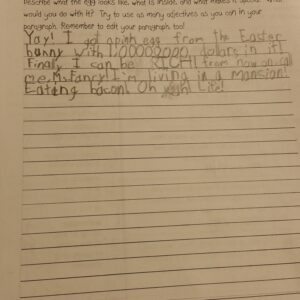 Describe what the egg looks like, what is inside, and what makes it special. What
would you do with it? Try to use as many adjectives as you can in your
paragraph. Remember to edit your paragraph too!
Yay! I got egg from the Easter
bunny with dolars in it!
Finally I can be RICH! from now on call
me, Ms. Fancy! I'm living in a Mansion!
Eating bacon! Oh yeah! Life!